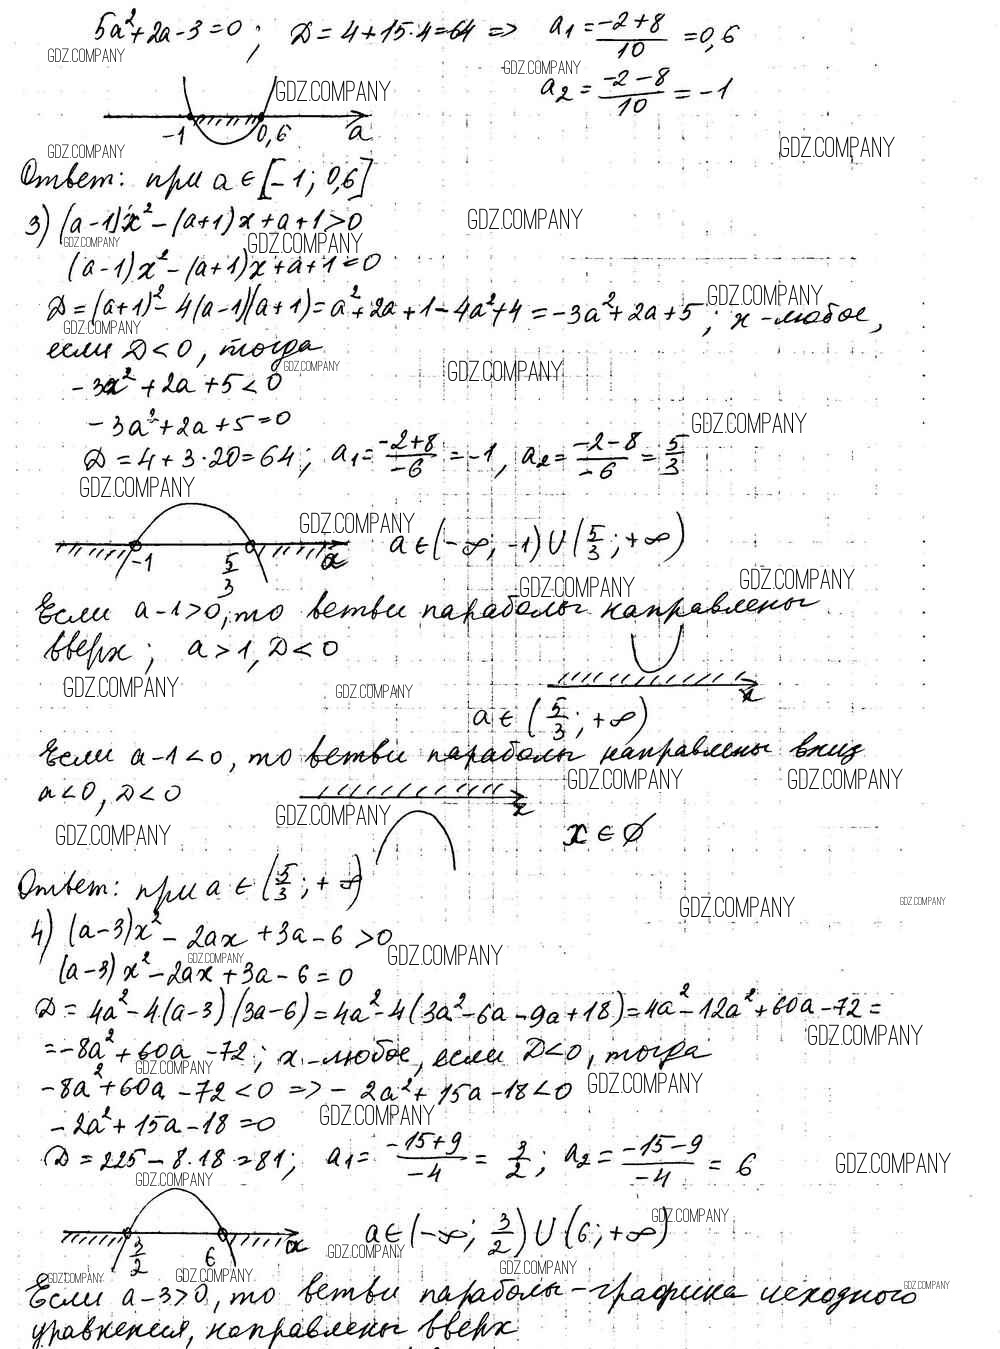 5a²+2a-3=0; D=4+15·4=64 => a₁=(-2+8)/10=0,6
a₂=(-2-8)/10=-1
GDZ.COMPANY
GDZ.COMPANY
GDZ.COMPANY
-1 0,6 a
GDZ.COMPANY
GDZ.COMPANY
Ответ: при a∈[-1; 0,6]
3) (a-1)x²-(a+1)x+a+1>0
GDZ.COMPANY
GDZ.COMPANY
GDZ.COMPANY
(a-1)x²-(a+1)x+a+1=0
GDZ.COMPANY
D=(a+1)²-4(a-1)(a+1)=a²+2a+1-4a²+4=-3a²+2a+5; x-любое,
GDZ.COMPANY
если D<0, тогда
GDZ.COMPANY
GDZ.COMPANY
-3a²+2a+5<0
-3a²+2a+5=0
GDZ.COMPANY
D=4+3·20=64; a₁=(-2+8)/-6=-1, a₂=(-2-8)/-6=5/3
GDZ.COMPANY
GDZ.COMPANY
-1 5/3 a
a∈(-∞; -1)∪(5/3; +∞)
GDZ.COMPANY
GDZ.COMPANY
Если a-1>0, то ветви параболы направлены
вверх; a>1, D<0
GDZ.COMPANY
GDZ.COMPANY
x
a∈(5/3; +∞)
Если a-1<0, то ветви параболы направлены вниз
GDZ.COMPANY
GDZ.COMPANY
a<0, D<0
x
GDZ.COMPANY
GDZ.COMPANY
x∈∅
Ответ: при a∈(5/3; +∞)
GDZ.COMPANY
GDZ.COMPANY
4) (a-3)x²-2ax+3a-6>0
GDZ.COMPANY
GDZ.COMPANY
(a-3)x²-2ax+3a-6=0
D=4a²-4(a-3)(3a-6)=4a²-4(3a²-6a-9a+18)=4a²-12a²+60a-72=
GDZ.COMPANY
=-8a²+60a-72; x-любое, если D<0, тогда
GDZ.COMPANY
-8a²+60a-72<0 => -2a²+15a-18<0
GDZ.COMPANY
GDZ.COMPANY
-2a²+15a-18=0
D=225-8·18=81; a₁=(-15+9)/-4=3/2; a₂=(-15-9)/-4=6
GDZ.COMPANY
GDZ.COMPANY
3/2 6 a
a∈(-∞; 3/2)∪(6; +∞)
GDZ.COMPANY
GDZ.COMPANY
GDZ.COMPANY
GDZ.COMPANY
GDZ.COMPANY
GDZ.COMPANY
Если a-3>0, то ветви параболы-графика исходного
уравнения, направлены вверх